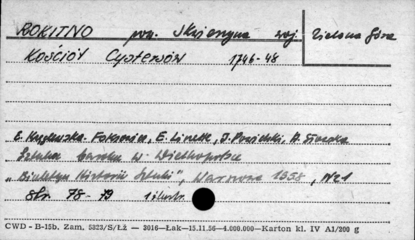 ROKITNO pow. Skwierzyna woj. Zielona Góra
KOŚCIÓŁ Cystersów 1746-48
E. Linette, A. Sławska
Sztuka baroku w Wielkopolsce
„Biuletyn Historii Sztuki", Warszawa 1958, Nr 1
Str. 78-79 1 ilustr.
CWD - B-15b. Zam. 5323/S/Łż — 3016—Łak—15.11.56—4.000.000—Karton kl. IV A1/200 g